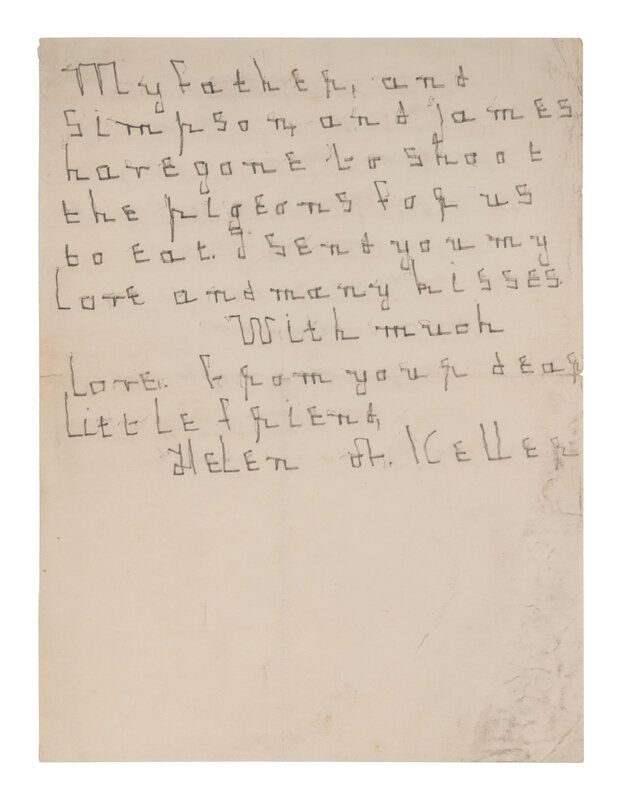 My father, and
Simpson, and James
have gone to shoot
the pigeons for us
to eat. I send you my
love and many kisses.
With much
love. From your dear
little friend,
Helen A. Keller